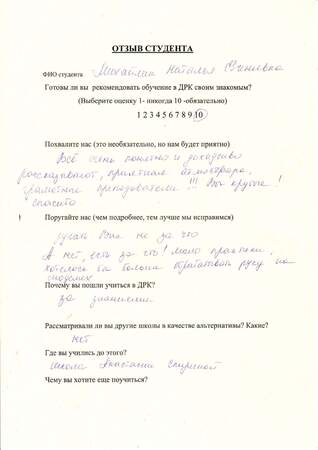 ОТЗЫВ СТУДЕНТА
ФИО студента Наталья
Готовы ли вы рекомендовать обучение в ДРК своим знакомым?
(Выберите оценку 1- никогда 10 -обязательно)
1 2 3 4 5 6 7 8 9 10
Похвалите нас (это необязательно, но нам будет приятно)
Всё очень понятно и доходчиво
рассказывают, приятная атмосфера,
грамотные преподаватели !!! Вы крутые !
спасибо
! Поругайте нас (чем подробнее, тем лучше мы исправимся)
ругать Вас не за что
А нет, есть за что! мало практики,
хотелось бы больше руку на
моделях
Почему вы пошли учиться в ДРК?
за знаниями
Рассматривали ли вы другие школы в качестве альтернативы? Какие?
нет
Где вы учились до этого?
школа Анастасии
Чему вы хотите еще поучиться?